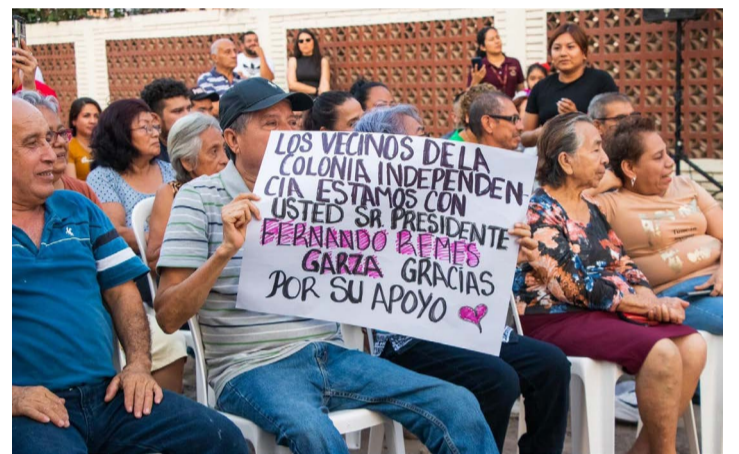 LOS VECINOS DE LA
COLONIA INDEPENDEN-
CIA ESTAMOS CON
USTED SR. PRESIDENTE
FERNANDO REMES
GARZA GRACIAS
POR SU APOYO